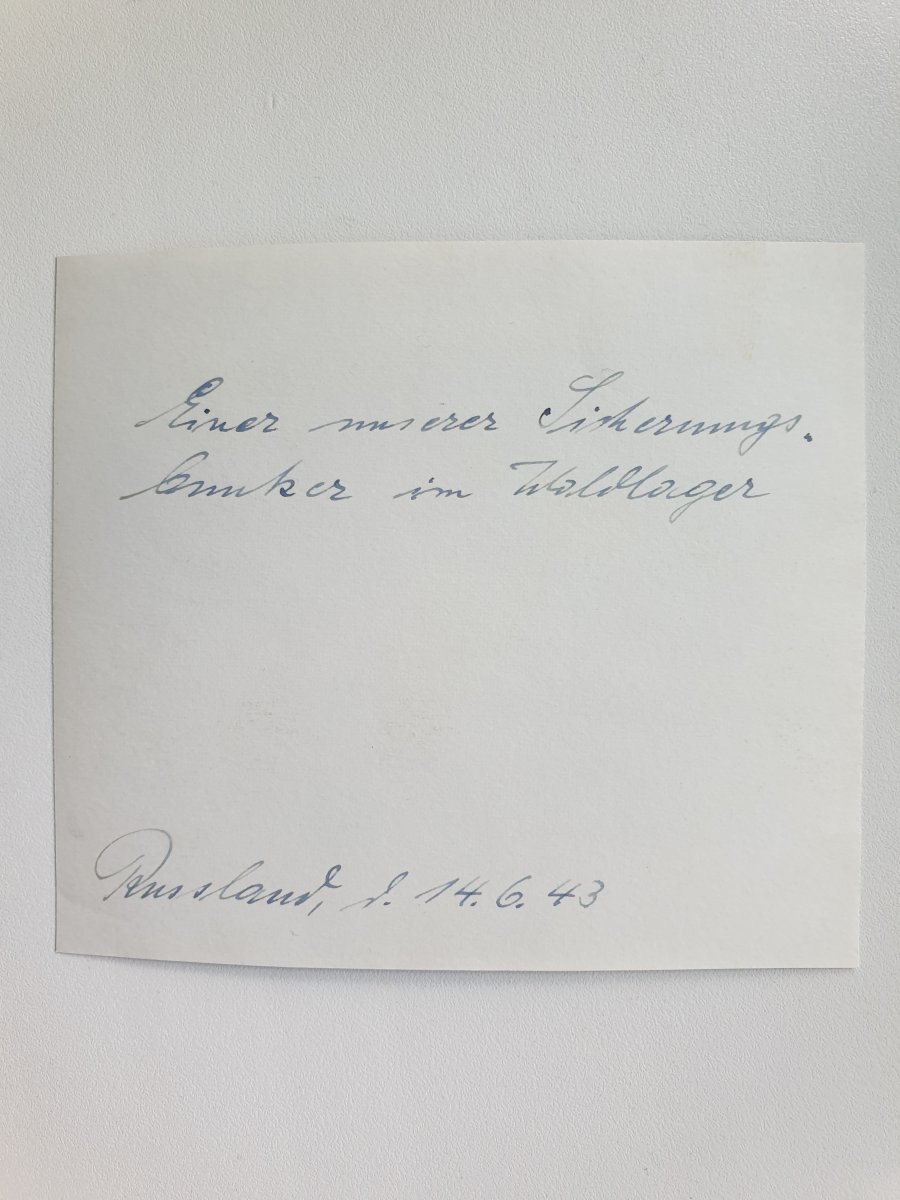 Einer unserer Sicherungs-
bunker im Waldlager
Russland, d. 14.6.43